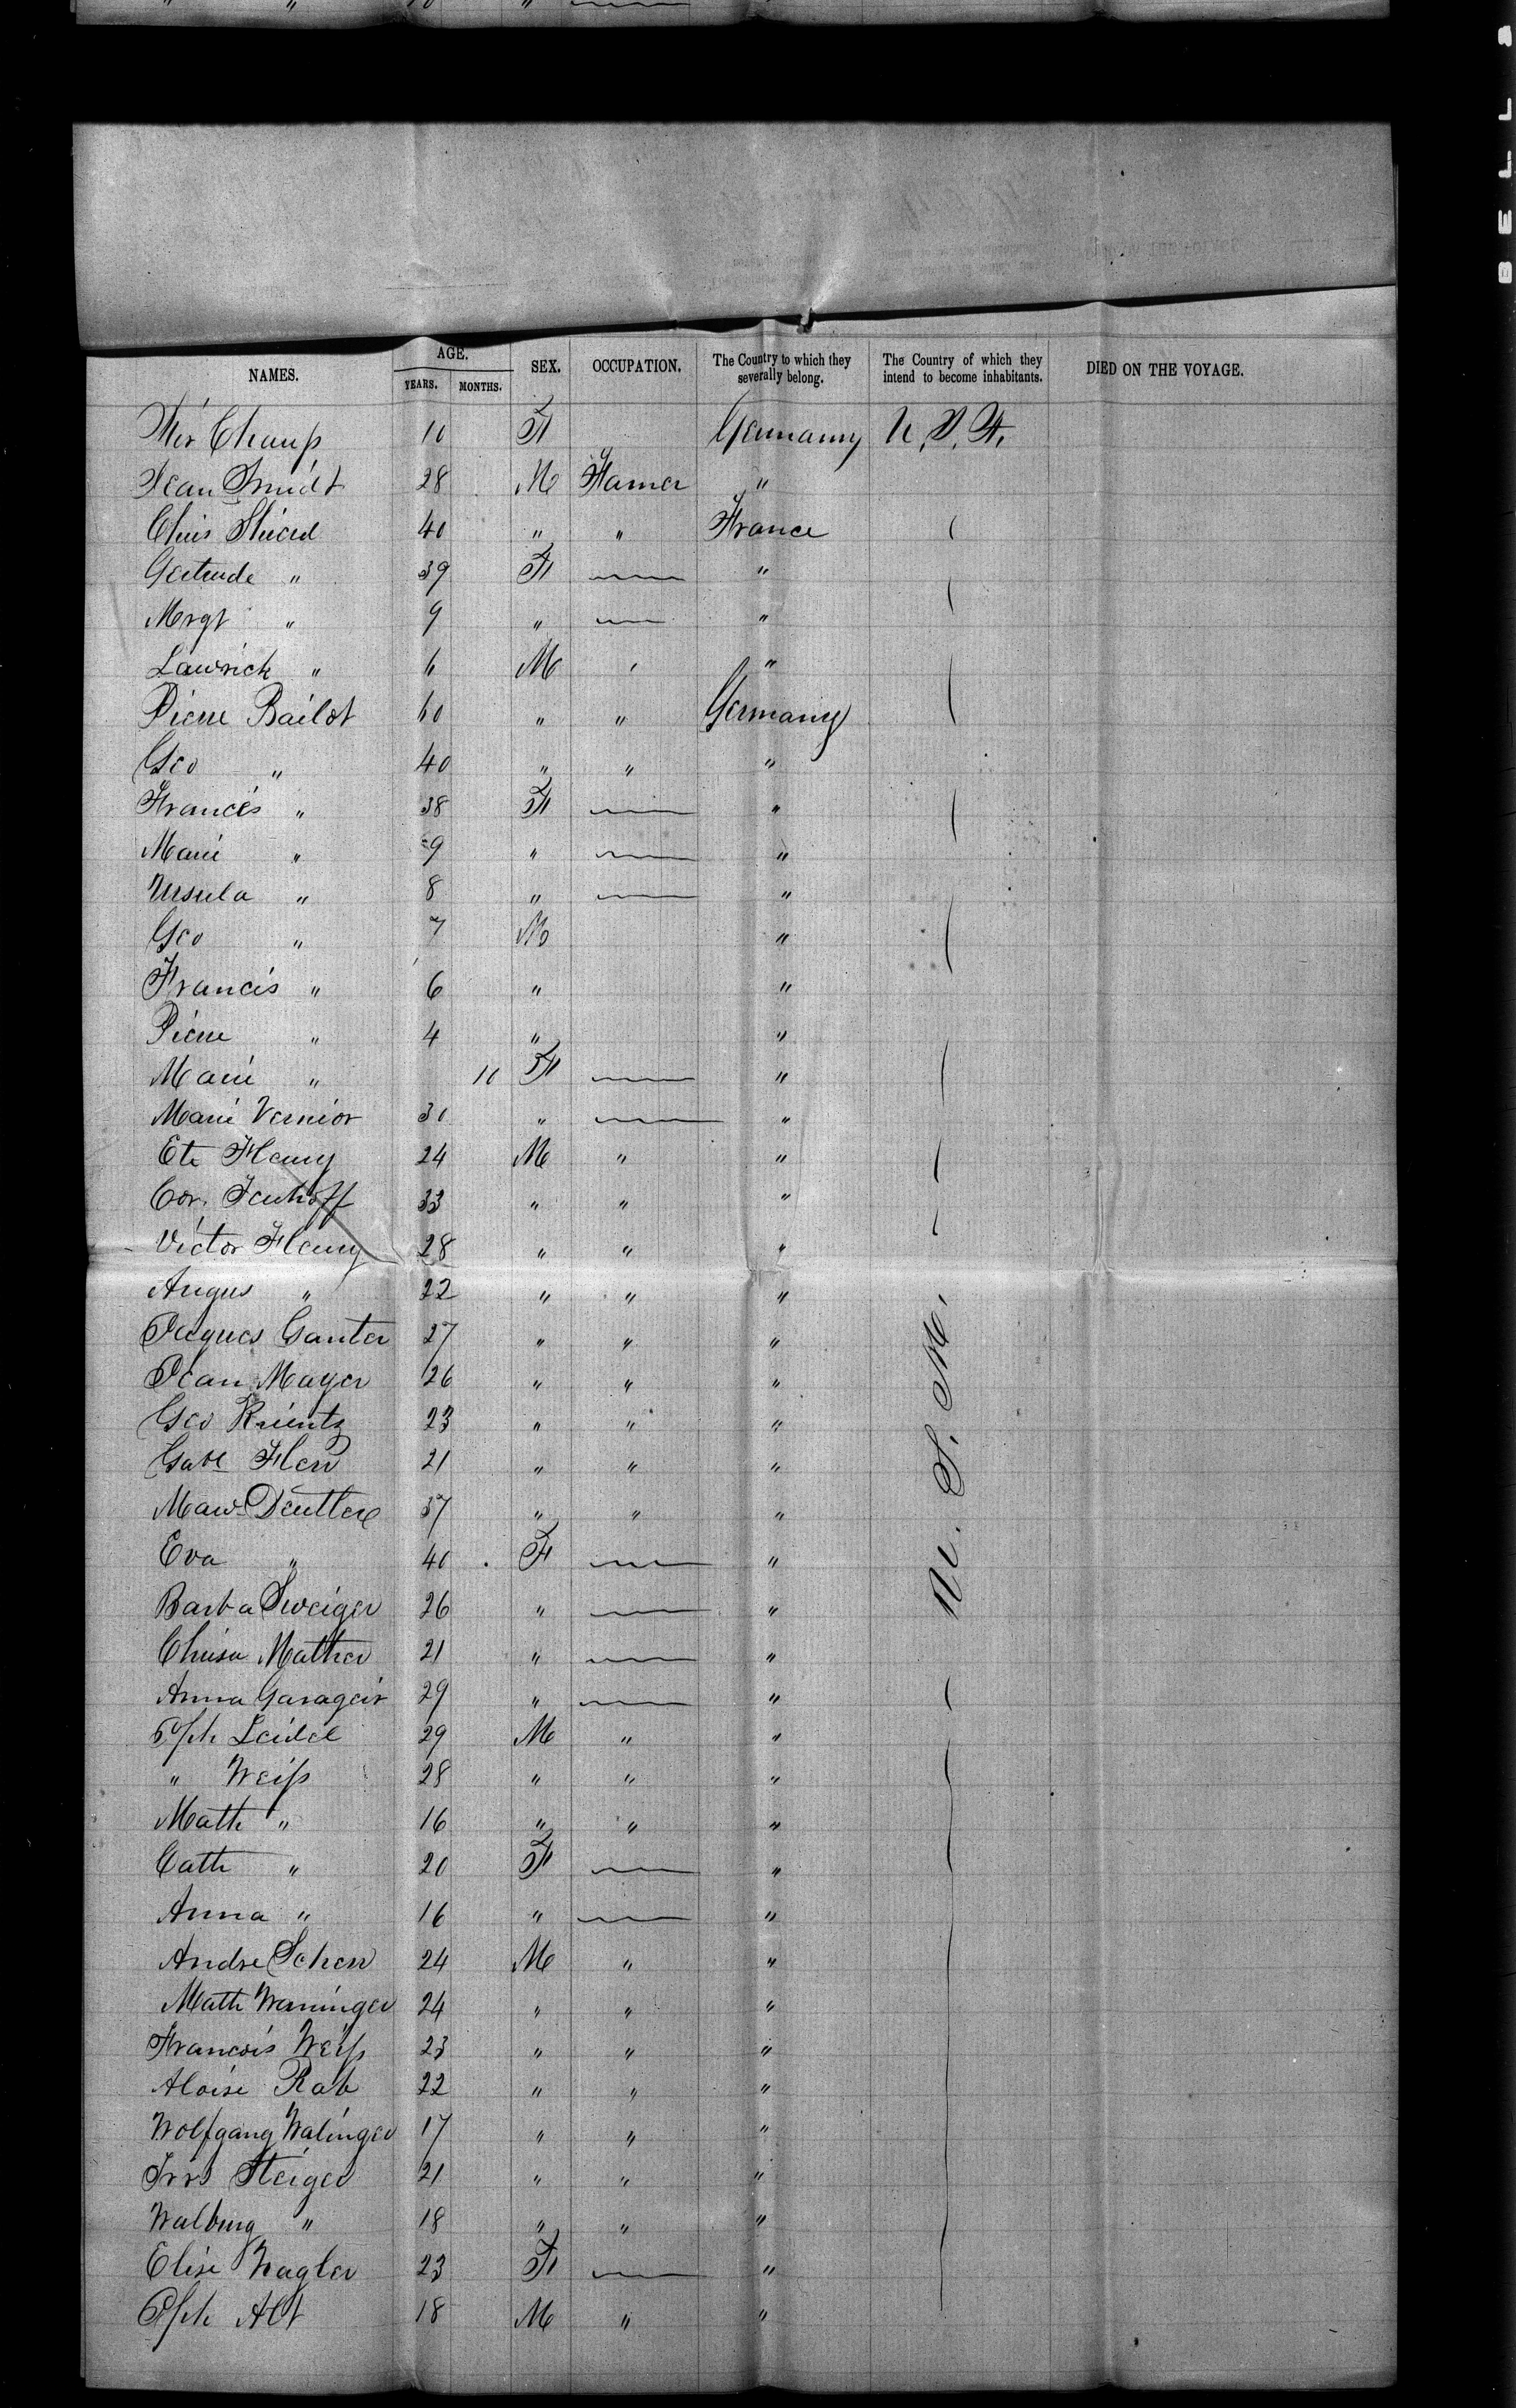 BELL
NAMES. AGE. YEARS. MONTHS. SEX. OCCUPATION. The Country to which they severally belong. The Country of which they intend to become inhabitants. DIED ON THE VOYAGE.
10 F Germany U.S.A.
Jean Smidt 28 M Farmer "
40 " " France
Gertrude " 39 F "
Mrgt " 9 " "
Lawrick " 6 M " "
Pierre Bailot 60 " " Germany
Geo " 40 " " "
Francés " 38 F "
Marie " 9 " "
Ursula " 8 " "
Geo " 7 M "
Francis " 6 " "
Pierre " 4 " "
Marie " 10 F "
Marie Vernior 30 " "
Ete Fleury 24 M " "
Cor. 33 " " "
Victor Fleury 28 " " "
Angus " 22 " " "
Jaques Ganter 27 " " "
Jean Mayer 26 " " "
Geo Rrientz 23 " " "
21 " " "
37 " " "
Eva " 40 F "
Barba Sweiger 26 " "
Mather 21 " "
Anna 29 " "
Jsph Leidel 29 M " "
" Weiss 28 " " "
Math " 16 " " "
Cath " 20 F "
Anna " 16 " "
Andre Scherr 24 M " "
Math Waninger 24 " " "
Francois Weiss 23 " " "
Aloise Rab 22 " " "
Wolfgang Walinger 17 " " "
Steiger 21 " " "
Walburg " 18 " " "
Elise Nagler 23 F "
Jsph Alt 18 M " "
U. S. A.